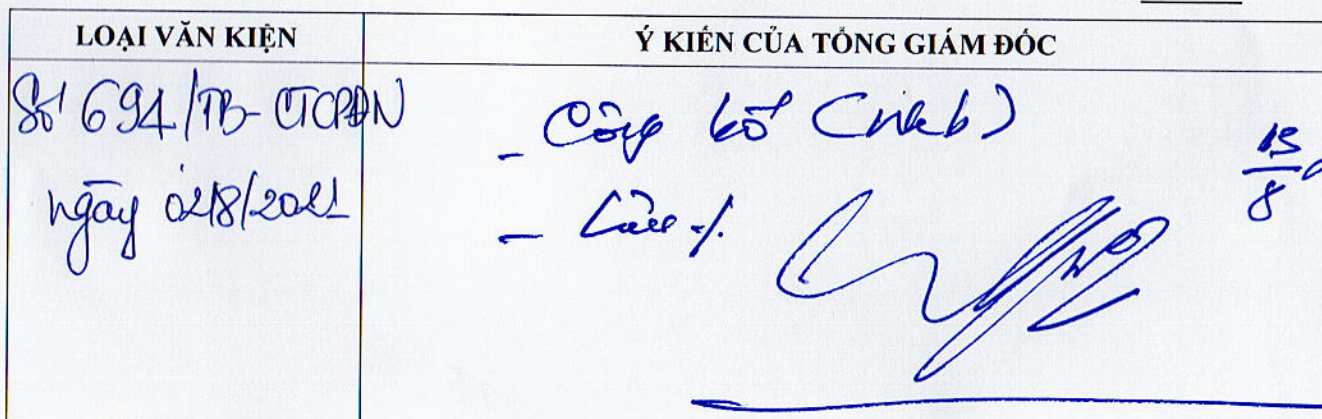 LOẠI VĂN KIỆN
Ý KIẾN CỦA TỔNG GIÁM ĐỐC
Số 694/TB-CTCPĐN
ngày 02/8/2021
- Công bố (web)
- Lưu ./.
15/8